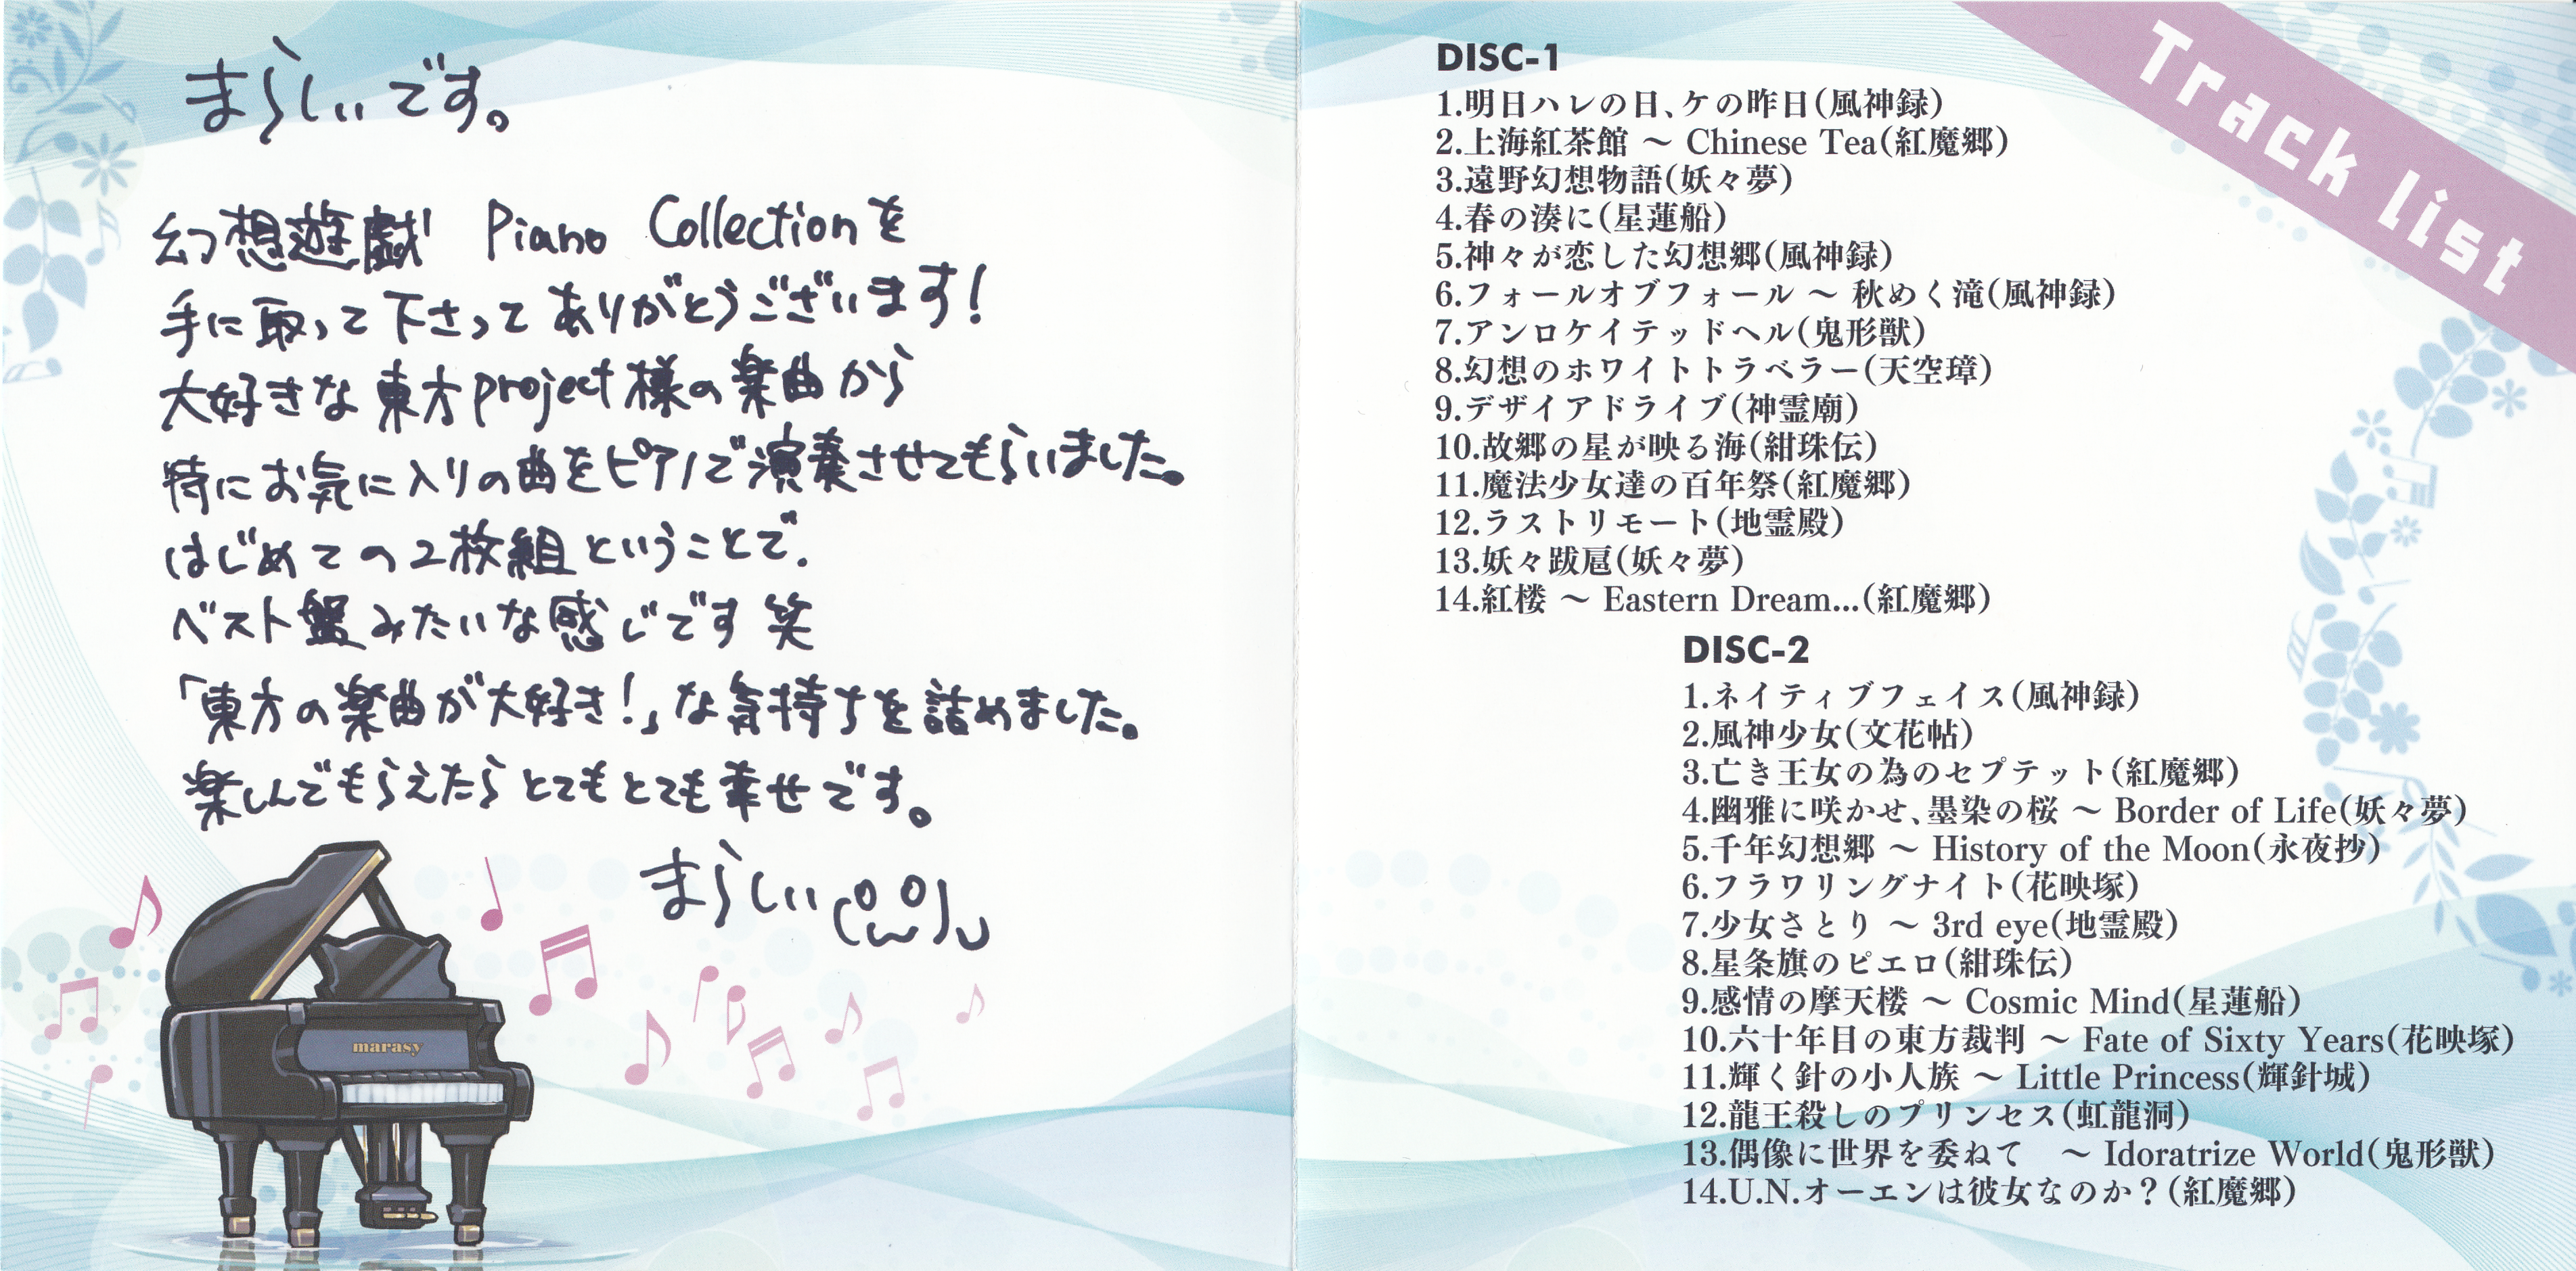 まらしぃです。
幻想遊戯 Piano Collectionを
手に取って下さってありがとうございます!
大好きな東方project様の楽曲から
特にお気に入りの曲をピアノで演奏させてもらいました。
はじめての2枚組ということで、
ベスト盤みたいな感じです 笑
「東方の楽曲が大好き!」な気持ちを詰めました。
楽しんでもらえたらとてもとても幸せです。
まらしぃ
marasy
Track list
DISC-1
1.明日ハレの日、ケの昨日(風神録)
2.上海紅茶館 ～ Chinese Tea(紅魔郷)
3.遠野幻想物語(妖々夢)
4.春の湊に(星蓮船)
5.神々が恋した幻想郷(風神録)
6.フォールオブフォール ～ 秋めく滝(風神録)
7.アンロケイテッドヘル(鬼形獣)
8.幻想のホワイトトラベラー(天空璋)
9.デザイアドライブ(神霊廟)
10.故郷の星が映る海(紺珠伝)
11.魔法少女達の百年祭(紅魔郷)
12.ラストリモート(地霊殿)
13.妖々跋扈(妖々夢)
14.紅楼 ～ Eastern Dream...(紅魔郷)
DISC-2
1.ネイティブフェイス(風神録)
2.風神少女(文花帖)
3.亡き王女の為のセプテット(紅魔郷)
4.幽雅に咲かせ、墨染の桜 ～ Border of Life(妖々夢)
5.千年幻想郷 ～ History of the Moon(永夜抄)
6.フラワリングナイト(花映塚)
7.少女さとり ～ 3rd eye(地霊殿)
8.星条旗のピエロ(紺珠伝)
9.感情の摩天楼 ～ Cosmic Mind(星蓮船)
10.六十年目の東方裁判 ～ Fate of Sixty Years(花映塚)
11.輝く針の小人族 ～ Little Princess(輝針城)
12.龍王殺しのプリンセス(虹龍洞)
13.偶像に世界を委ねて　～ Idoratrize World(鬼形獣)
14.U.N.オーエンは彼女なのか？(紅魔郷)